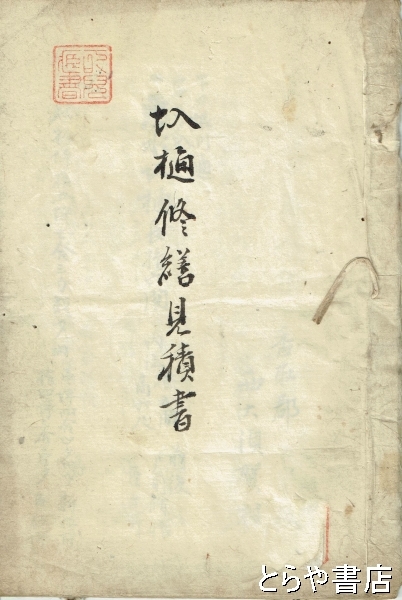 圦樋修繕見積書
とらや書店